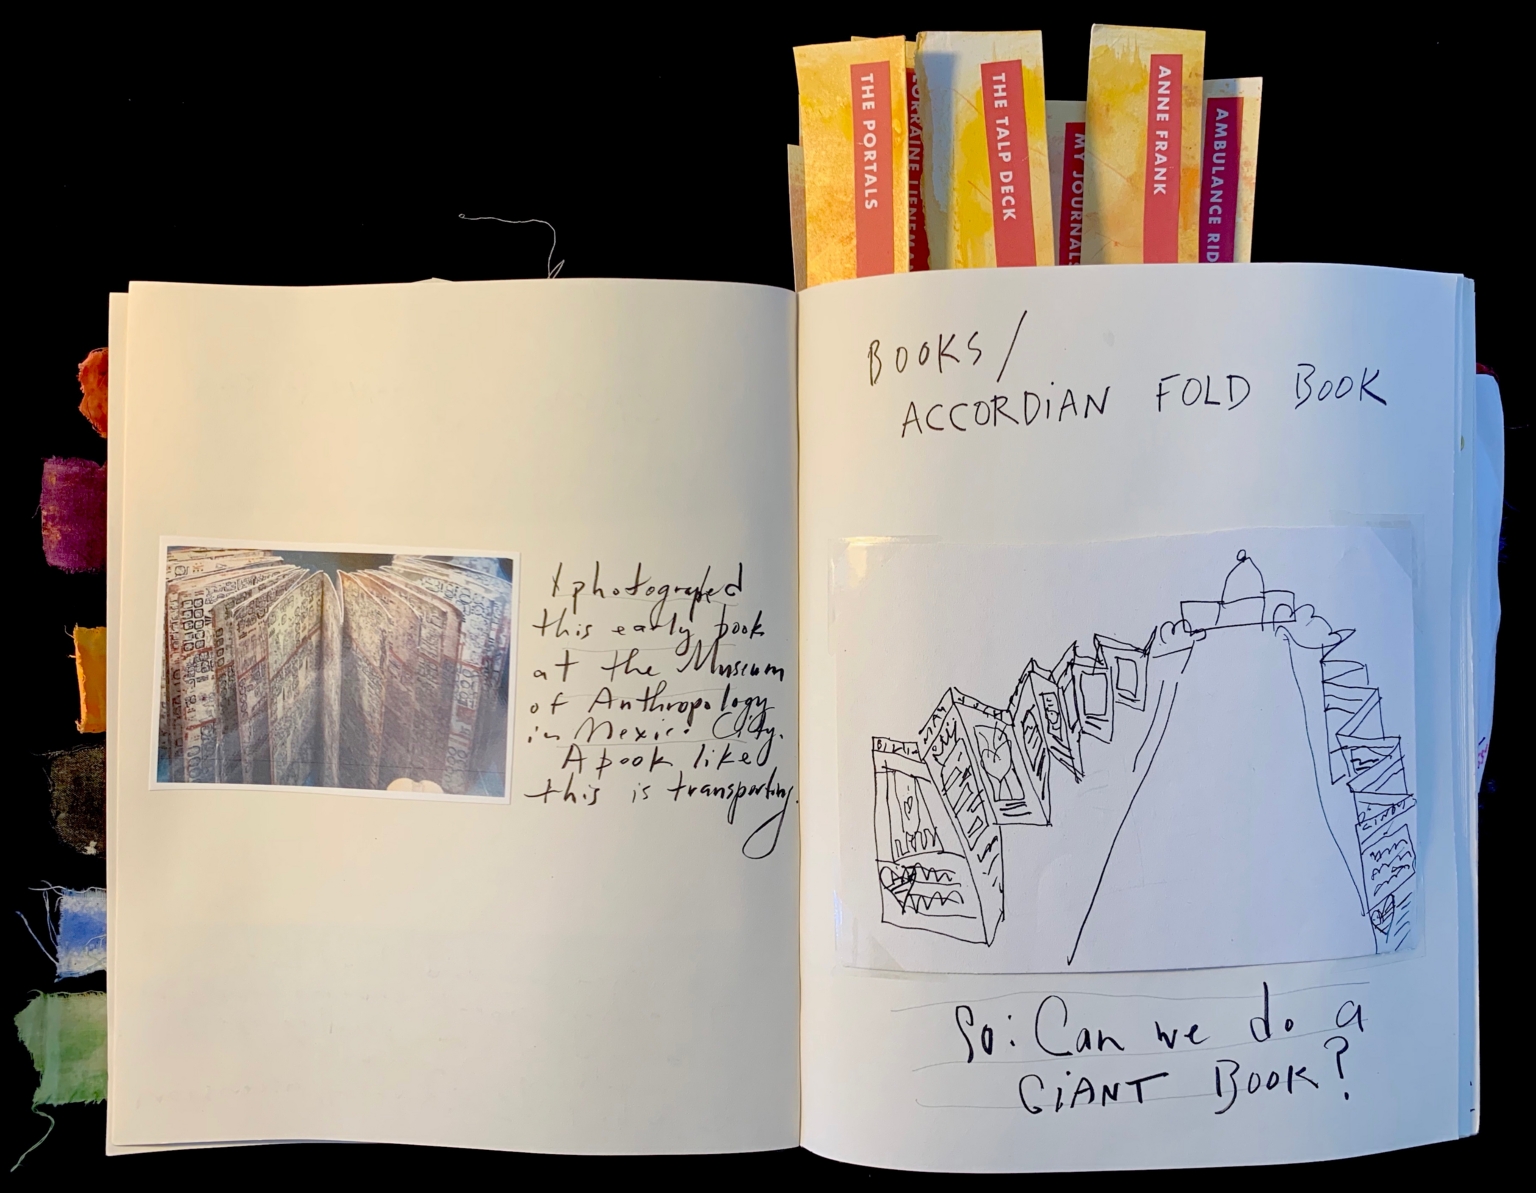 THE PORTALS
LORRAINE
THE TALP DECK
MY JOURNALS
ANNE FRANK
AMBULANCE RID
I photographed
this early book
at the Museum
of Anthropology
in Mexico City.
A book like
this is transporting.
BOOKS/
ACCORDIAN FOLD BOOK
So: Can we do a
GiANT BOOK?